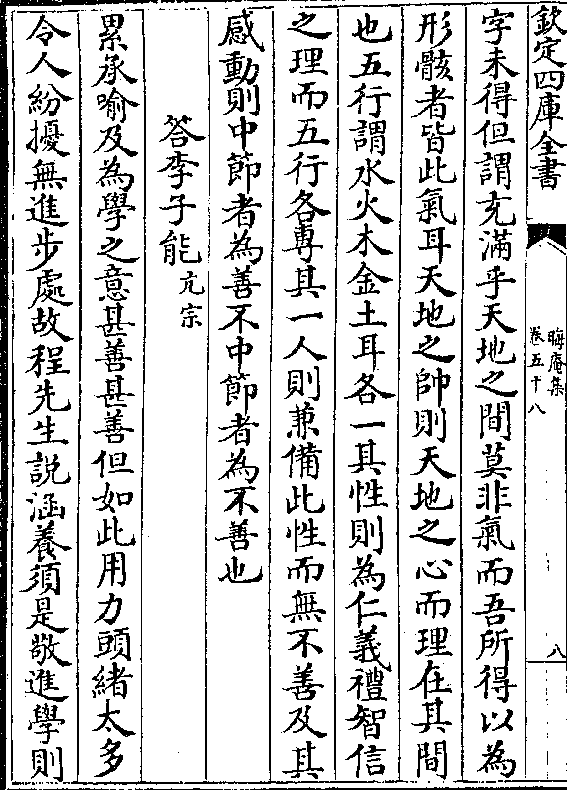 欽定四庫全書
晦庵集
卷五十八
八
字未得但謂充滿乎天地之間莫非氣而吾所得以為
形骸者皆此氣耳天地之帥則天地之心而理在其間
也五行謂水火木金土耳各一其性則為仁義禮智信
之理而五行各專其一人則兼備此性而無不善及其
感動則中節者為善不中節者為不善也
答李子能亢宗
累承喻及為學之意甚善甚善但如此用力頭緒太多
令人紛擾無進步處故程先生說涵養須是敬進學則